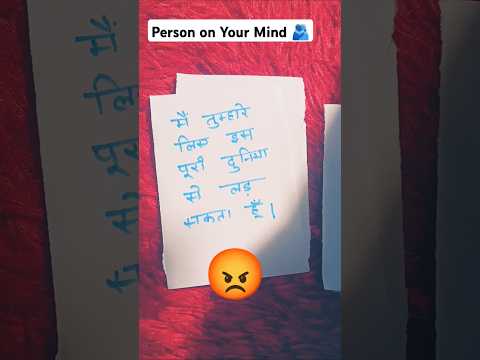 Person on Your Mind 🫂
मैं तुम्हारे
लिए इस
पूरी दुनिया
से लड़
सकता हूँ।